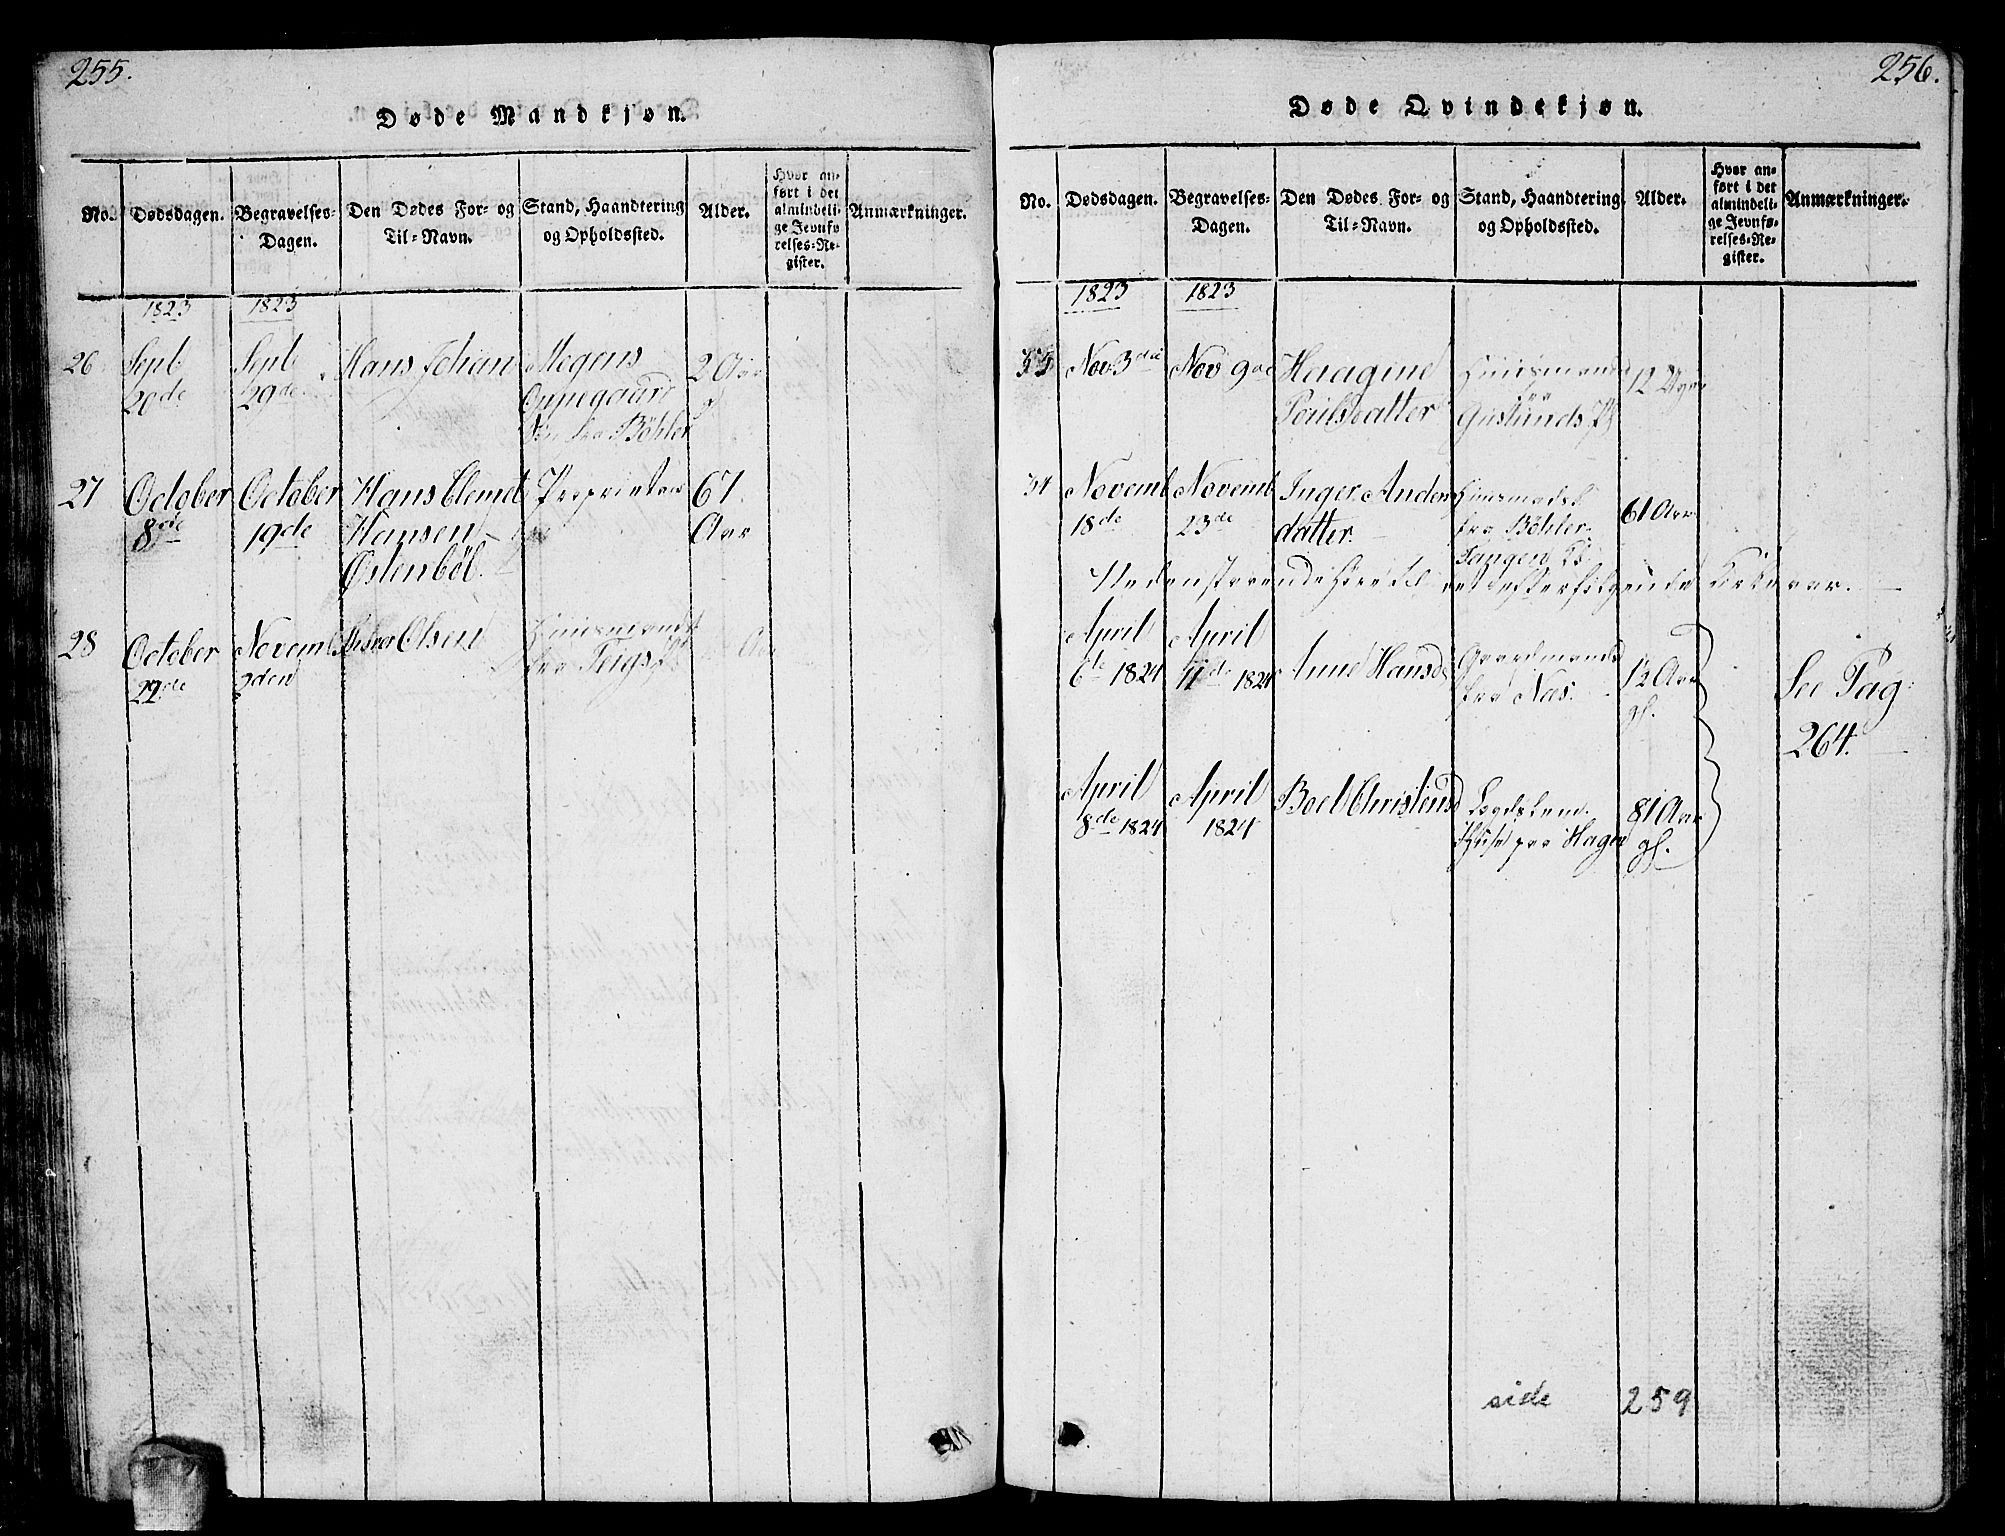 255.
Døde Mandkjøn.
No. Dødsdagen. Begravelses-Dagen. Den Dødes For- og Til-Navn. Stand, Haandtering og Opholdssted. Alder. Hvor anført i det almindelige Jevnførelses-Register. Anmærkninger.
1823 1823
26 Sept 20de Sept 29de Hans Johan Mogens Oppegaard Søn fra Böhler 2 Aar
27 October 8de October 19de Hans Clemet Hansen Østenböl. Proprietair 67. Aar
28 October 29de Novemb 2den Olsen Huusmands fra Teigs Aar
256.
Døde Qvindekjøn.
No. Dødsdagen. Begravelses-Dagen. Den Dødes For- og Til-Navn. Stand, Haandtering og Opholdssted. Alder. Hvor anført i det almindelige Jevnførelses-Register. Anmærkninger.
1823 1823
33 Nov 3die Nov 9de Haagine Poulsdatter Huusmands 12 Uger
34 Novemb 18de Novemb 23de Inger Anders datter. fra Böhler Tangen 61 Aar
Nedenstaaende hører til det efterfölgende Kirkeaar.
April 6te 1824 April 11de 1824 Anne Hansd Gaardmands fra Næs. 12 Aar gl.
See Pag: 264.
April 8de 1824 April 1824 Boel Christensd Hagen 81 Aar gl.
side 259